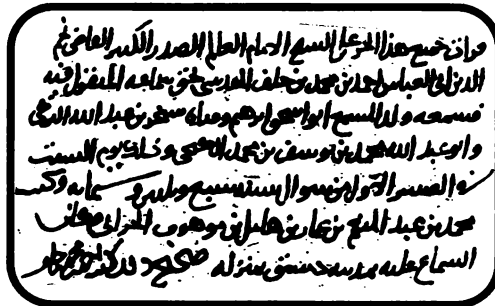 قرات جميع هذا الجزء على الشيخ الامام العالم الصدر الكبير القاضي نجم
الدين ابي العباس احمد بن محمد بن خلف المقدسي بحق سماعه المنقول فيه
فسمعه ولد المسمع ابو اسحق ابرهيم وفتاه سنجر بن عبد الله التركي
وابو عبد الله محمد بن يوسف بن محمد وذلك يوم السبت
في العشر الاول من شوال سنة سبع وثلثين وستمايه وكتب
محمد بن عبد المنعم بن عمار بن هامل بن موهوب الحراني
السماع عليه بمدينة دمشق بمنزله صحيح